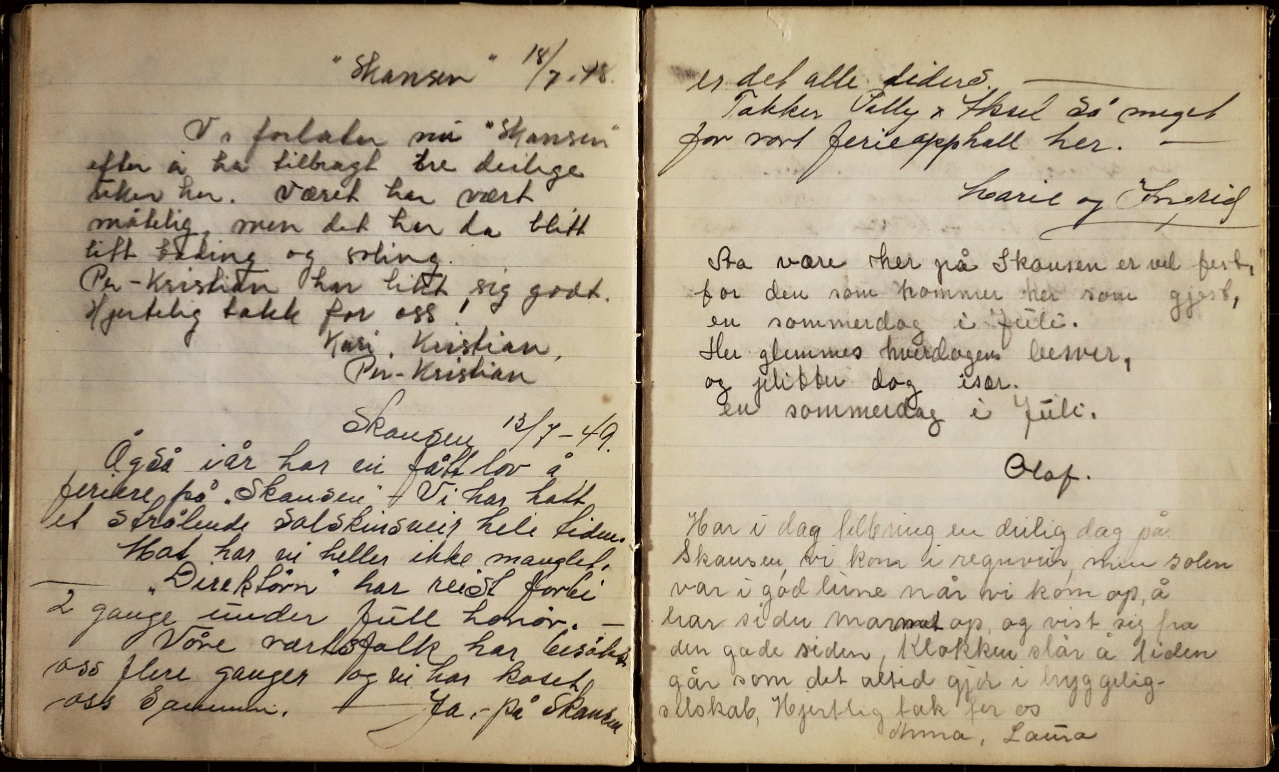 "Skansen" 18/7-48.
Vi forlater nu "Skansen"
efter å ha tilbragt tre deilige
uker her. Været har vært
måtelig, men det har da blitt
litt bading og soling.
Per-Kristian har likt sig godt.
Hjertelig takk for oss!
Kari, Kristian,
Per-Kristian
Skansen 13/7-49.
Også i år har vi fått lov å
feriere på "Skansen" - Vi har hatt
et strålende solskinsveir hele tiden.
Mat har vi heller ikke manglet.
— "Direktørn" har reist forbi
2 gange under full honør. —
Våre værtsfolk har besøkt
oss flere ganger og vi har koset
oss sammen. — Ja,- på Skansen
er det alle tiders. —
Takker Pally & Aksel så meget
for vort ferieopphall her. —
Marie og Ingrid
Aa være her på Skansen er vel fest,
for den som kommer her som gjest,
en sommerdag i Juli.
Her glemmes hverdagens besver,
og plikter dog især.
en sommerdag i Juli.
Olaf.
Har i dag tilbring en deilig dag på
Skansen, vi kom i regnveir, men solen
var i god lune når vi kom op, å
har siden varmet op, og vist sig fra
den gode siden, Klokken slår å tiden
går som det altid gjør i hyggelig-
selskab, Hjertlig tak for os
Anna, Laura